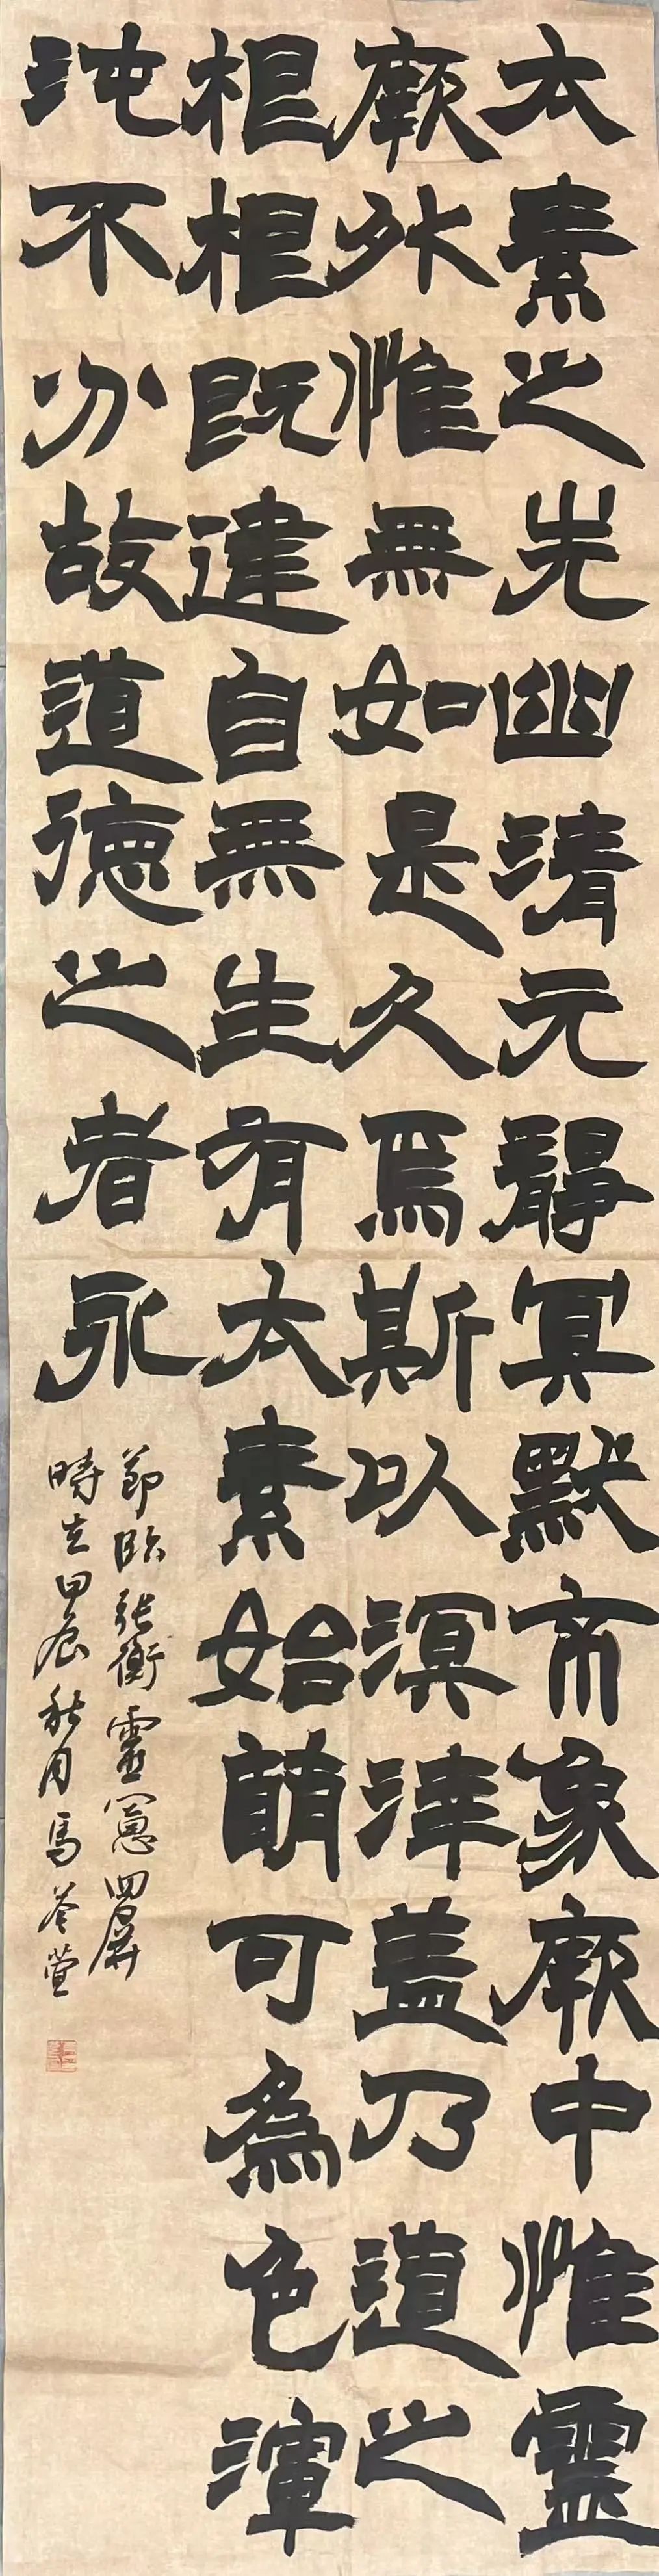 太素之先幽清元靜冥默帝象厥中惟靈
厥外惟無如是久焉斯以溟涬蓋乃道之
根根既建自無生有太素始萌可為色渾
沌不分故道德之者永
節臨張衡靈憲四屏
時在甲辰秋月馬